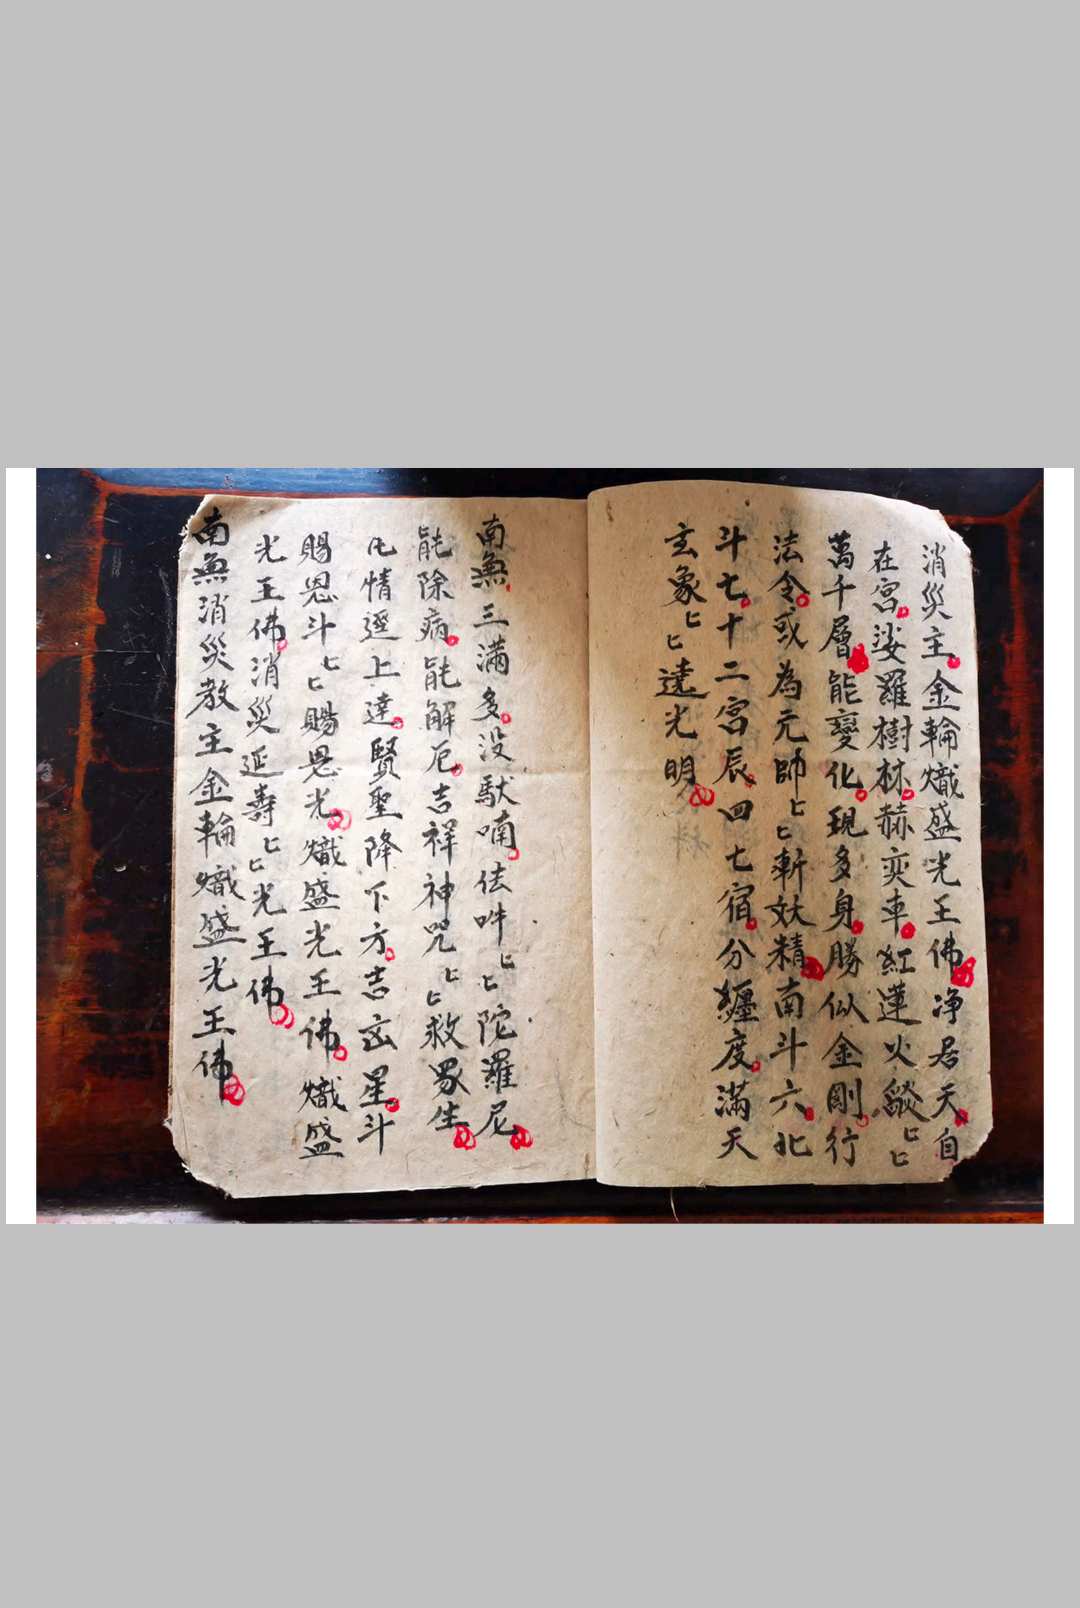 消災主金輪熾盛光王佛净居天自
在宮娑羅樹林赫奕車紅蓮火燄匕匕
萬千層能變化現多身勝似金剛行
法令或為元帥匕匕斬妖精南斗六北
斗七十二宮辰四七宿分纏度滿天
玄象匕匕達光明
南無三滿多没馱喃佉吽匕匕陀羅尼
能除病能解厄吉祥神咒匕匕救眾生
凡情遥上達賢聖降下方吉玄星斗
賜恩斗匕匕賜恩光熾盛光王佛熾盛
光王佛消災延壽匕匕光王佛
南無消災教主金輪熾盛光王佛